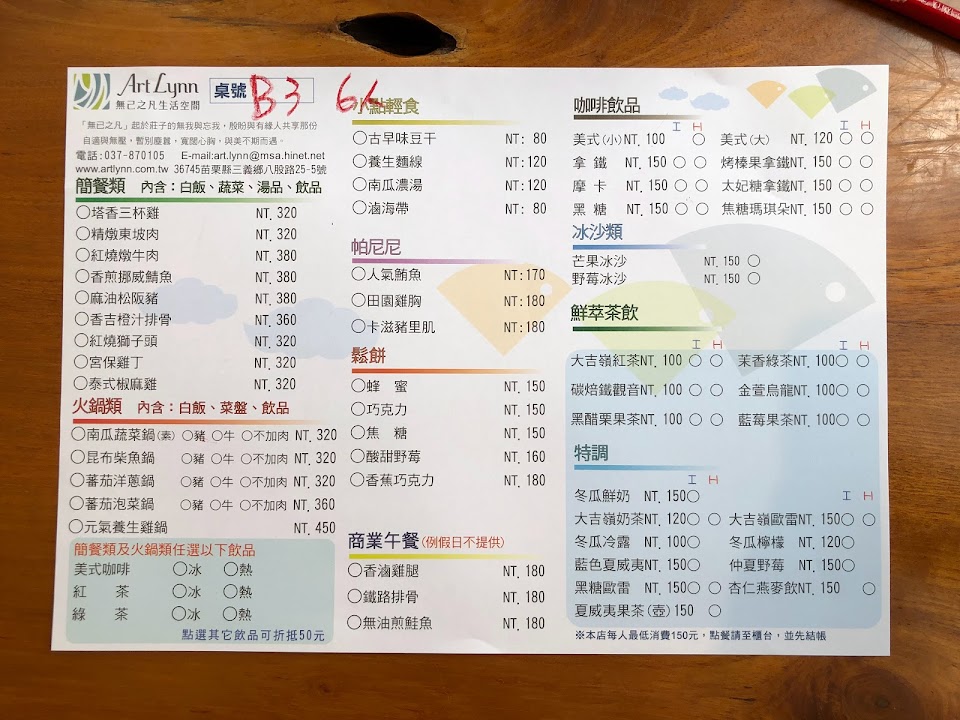 Art Lynn
無己之凡生活空間
桌號 B3 6人
「無己之凡」起於莊子的無我與忘我，殷盼與有緣人共享那份
自適與無壓，暫別塵囂，寬闊心胸，與美不期而遇。
電話:037-870105 E-mail:art.lynn@msa.hinet.net
www.artlynn.com.tw 36745苗栗縣三義鄉八股路25-5號
簡餐類 內含：白飯、蔬菜、湯品、飲品
〇塔香三杯雞 NT. 320
〇精燉東坡肉 NT. 320
〇紅燒燉牛肉 NT. 380
〇香煎挪威鯖魚 NT. 380
〇麻油松阪豬 NT. 380
〇香吉橙汁排骨 NT. 360
〇紅燒獅子頭 NT. 320
〇宮保雞丁 NT. 320
〇泰式椒麻雞 NT. 320
火鍋類 內含：白飯、菜盤、飲品
〇南瓜蔬菜鍋(素) 〇豬 〇牛 〇不加肉 NT. 320
〇昆布柴魚鍋 〇豬 〇牛 〇不加肉 NT. 320
〇蕃茄洋蔥鍋 〇豬 〇牛 〇不加肉 NT. 320
〇蕃茄泡菜鍋 〇豬 〇牛 〇不加肉 NT. 360
〇元氣養生雞鍋 NT. 450
簡餐類及火鍋類任選以下飲品
美式咖啡 〇冰 〇熱
紅 茶 〇冰 〇熱
綠 茶 〇冰 〇熱
點選其它飲品可折抵50元
小點輕食
〇古早味豆干 NT: 80
〇養生麵線 NT:120
〇南瓜濃湯 NT:120
〇滷海帶 NT: 80
帕尼尼
〇人氣鮪魚 NT:170
〇田園雞胸 NT:180
〇卡滋豬里肌 NT:180
鬆餅
〇蜂 蜜 NT. 150
〇巧克力 NT. 150
〇焦 糖 NT. 150
〇酸甜野莓 NT. 160
〇香蕉巧克力 NT. 180
商業午餐(例假日不提供)
〇香滷雞腿 NT. 180
〇鐵路排骨 NT. 180
〇無油煎鮭魚 NT. 180
咖啡飲品
I H I H
美式(小)NT. 100 〇 美式(大) NT. 120 〇 〇
拿 鐵 NT. 150 〇 〇 烤榛果拿鐵NT. 150 〇 〇
摩 卡 NT. 150 〇 〇 太妃糖拿鐵NT. 150 〇 〇
黑 糖 NT. 150 〇 〇 焦糖瑪琪朵NT. 150 〇 〇
冰沙類
芒果冰沙 NT. 150 〇
野莓冰沙 NT. 150 〇
鮮萃茶飲
I H I H
大吉嶺紅茶NT. 100 〇 〇 茉香綠茶NT. 100〇 〇
碳焙鐵觀音NT. 100 〇 〇 金萱烏龍NT. 100〇 〇
黑醋栗果茶NT. 100 〇 〇 藍莓果茶NT. 100〇 〇
特調
I H
冬瓜鮮奶 NT. 150〇 I H
大吉嶺奶茶NT. 120〇 〇 大吉嶺歐蕾NT. 150〇 〇
冬瓜冷露 NT. 100〇 冬瓜檸檬 NT. 120〇
藍色夏威夷NT. 150〇 仲夏野莓 NT. 150〇
黑糖歐蕾 NT. 150〇 〇 杏仁燕麥飲NT. 150 〇
夏威夷果茶(壺)150 〇
※本店每人最低消費150元，點餐請至櫃台，並先結帳